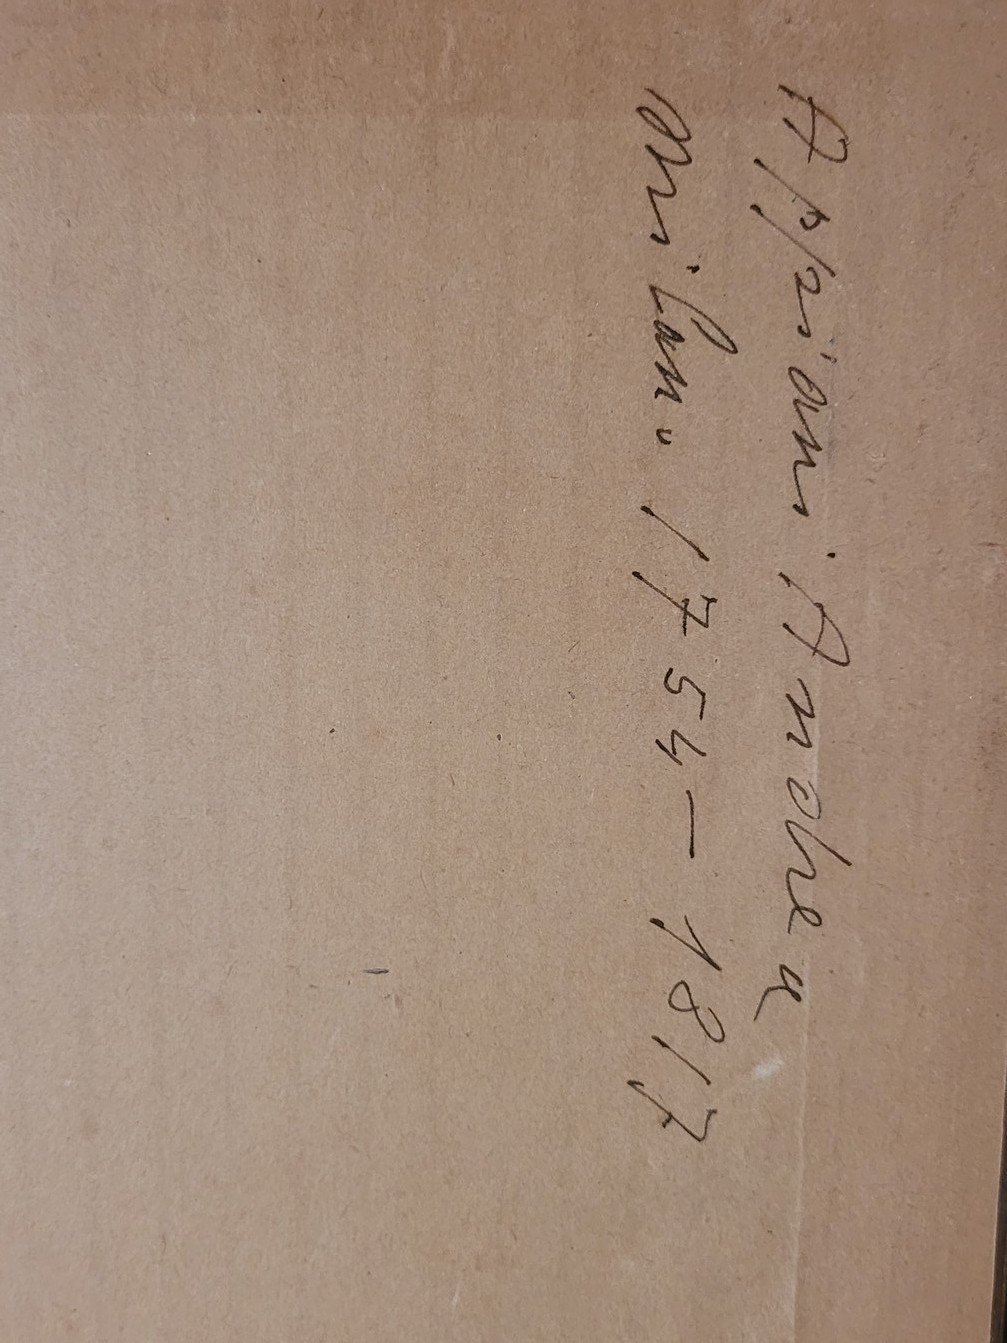 Appiani Andrea
Milan. 1754 – 1817